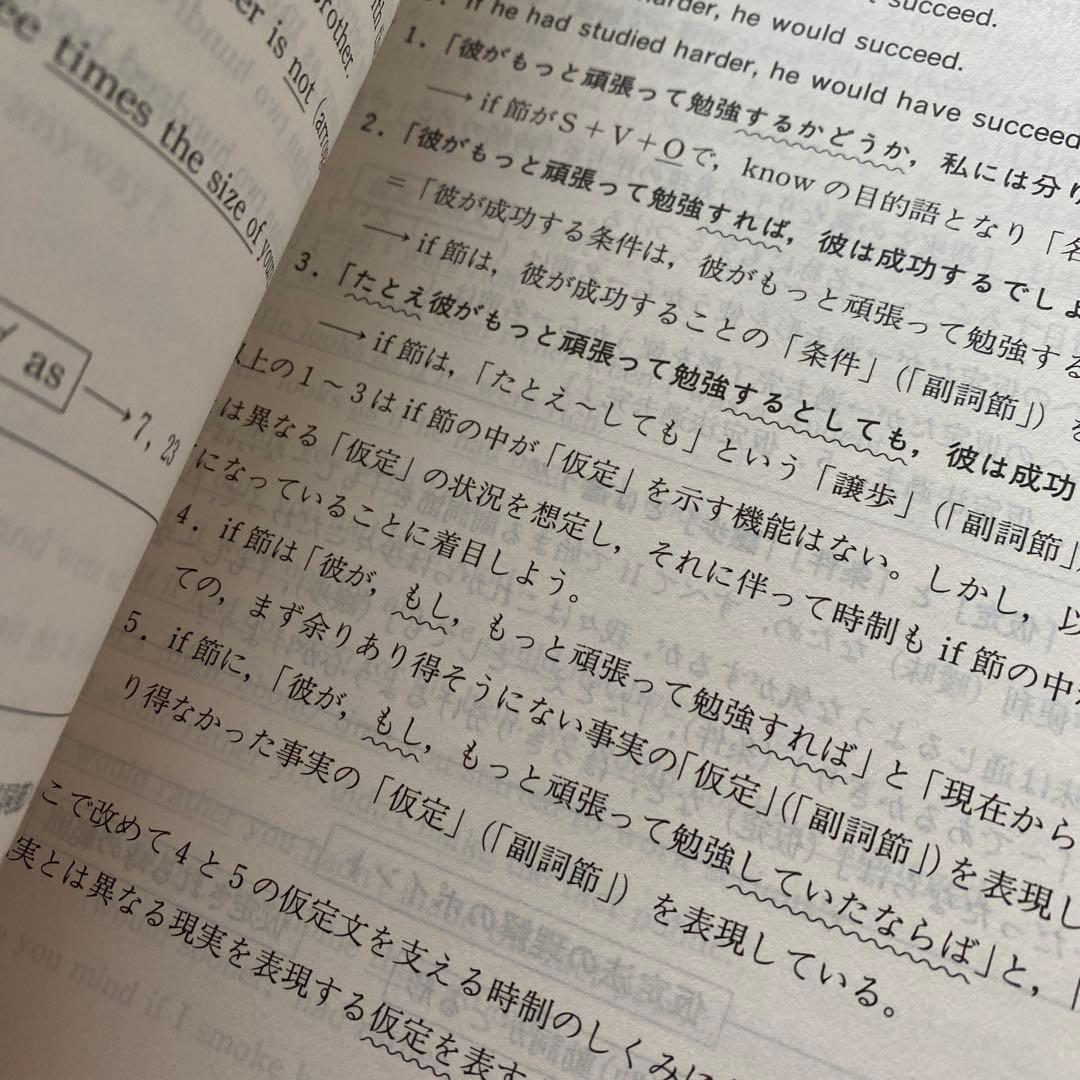 brother.
er is not
times the size of
as
7, 23
succeed.
harder, he would succeed.
If he had studied harder, he would have succeed
1.「彼がもっと頑張って勉強するかどうか，私には分り
→ if 節がS＋V＋Oで，know の目的語となり「名
2.「彼がもっと頑張って勉強すれば，彼は成功するでしょ
＝「彼が成功する条件は，彼がもっと頑張って勉強する
→ if 節は，彼が成功することの「条件」（「副詞節」）を
3.「たとえ彼がもっと頑張って勉強するとしても，彼は成功
→ if 節は，「たとえ～しても」という「譲歩」（「副詞節」）
上の１～３は if 節の中が「仮定」を示す機能はない。しかし，以
は異なる「仮定」の状況を想定し，それに伴って時制も if 節の中が
になっていることに着目しよう。
4. if 節は「彼が，もし，もっと頑張って勉強すれば」と「現在から
ての，まず余りあり得そうにない事実の「仮定」（「副詞節」）を表現し
5. if 節に，「彼が，もし，もっと頑張って勉強していたならば」と，「
り得なかった事実の「仮定」（「副詞節」）を表現している。
こで改めて４と５の仮定文を支える時制のしくみに
実とは異なる現実を表現する仮定を表す